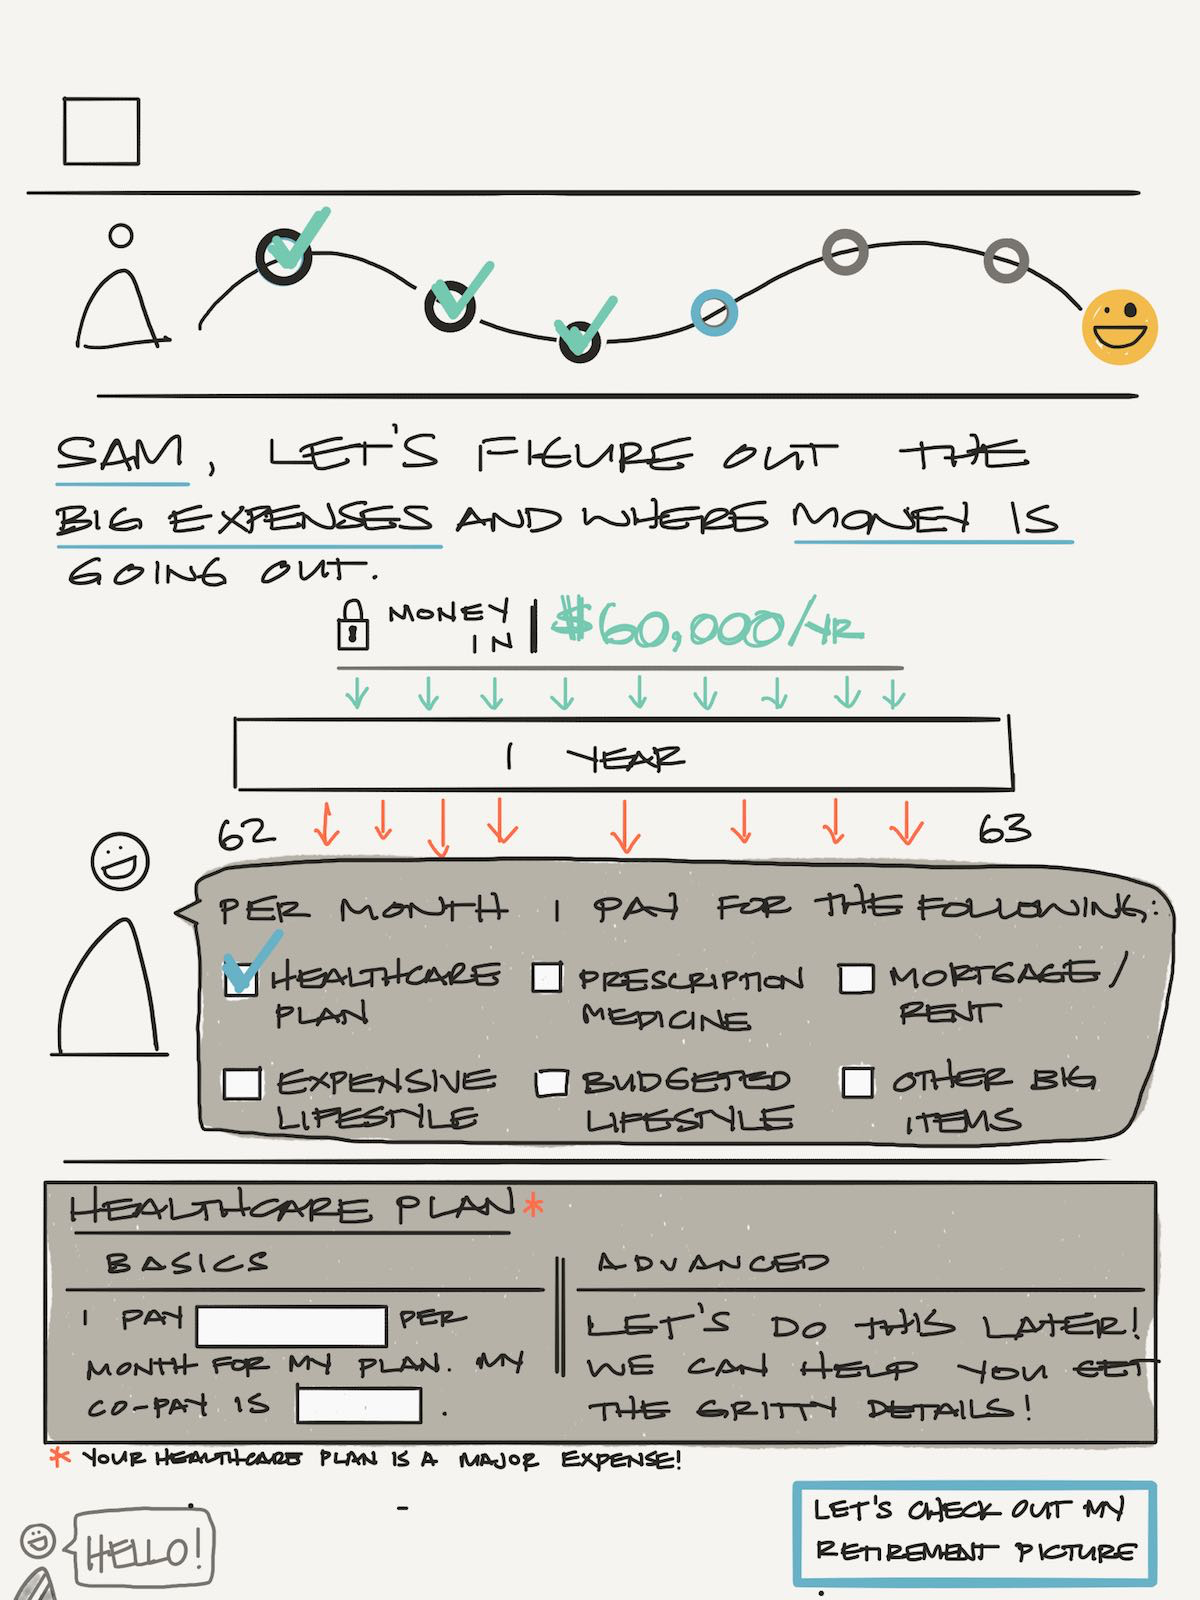 SAM, LET'S FIGURE OUT THE
BIG EXPENSES AND WHERE MONEY IS
GOING OUT.
MONEY
IN
$60,000/YR
1 YEAR
62
63
PER MONTH I PAY FOR THE FOLLOWING:
HEALTHCARE
PLAN
PRESCRIPTION
MEDICINE
MORTGAGE/
RENT
EXPENSIVE
LIFESTYLE
BUDGETED
LIFESTYLE
OTHER BIG
ITEMS
HEALTHCARE PLAN*
BASICS
I PAY PER
MONTH FOR MY PLAN. MY
CO-PAY IS .
ADVANCED
LET'S DO THIS LATER!
WE CAN HELP YOU GET
THE GRITTY DETAILS!
* YOUR HEALTHCARE PLAN IS A MAJOR EXPENSE!
HELLO!
LET'S CHECK OUT MY
RETIREMENT PICTURE